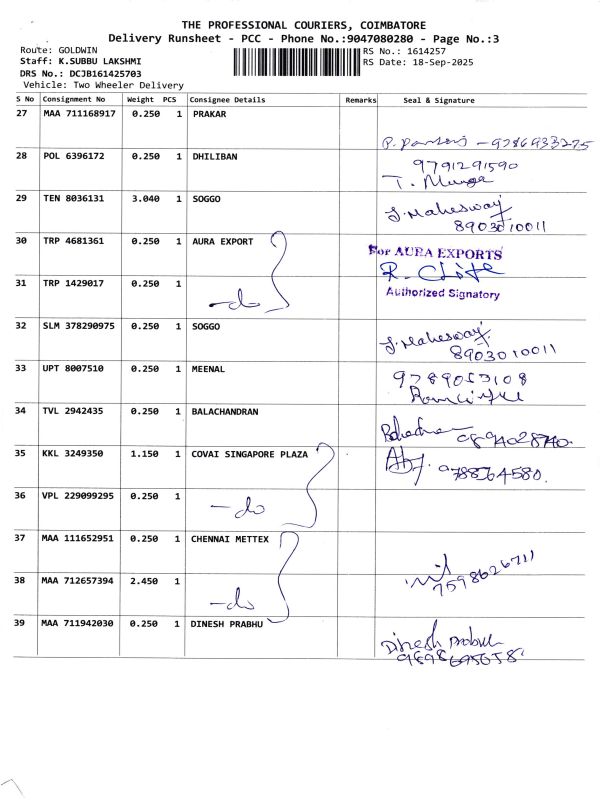 THE PROFESSIONAL COURIERS, COIMBATORE
Delivery Runsheet - PCC - Phone No.:9047080280 - Page No.:3
Route: GOLDWIN RS No.: 1614257
Staff: K.SUBBU LAKSHMI RS Date: 18-Sep-2025
DRS No.: DCJB161425703
Vehicle: Two Wheeler Delivery
S No Consignment No Weight PCS Consignee Details Remarks Seal & Signature
27 MAA 711168917 0.250 1 PRAKAR
28 POL 6396172 0.250 1 DHILIBAN
9791291590
29 TEN 8036131 3.040 1 SOGGO
J. Maheswary
8903010011
30 TRP 4681361 0.250 1 AURA EXPORT
For AURA EXPORTS
31 TRP 1429017 0.250 1
-do
Authorized Signatory
32 SLM 378290975 0.250 1 SOGGO
J. Maheswary
8903010011
33 UPT 8007510 0.250 1 MEENAL
34 TVL 2942435 0.250 1 BALACHANDRAN
35 KKL 3249350 1.150 1 COVAI SINGAPORE PLAZA
36 VPL 229099295 0.250 1
-do
37 MAA 111652951 0.250 1 CHENNAI METTEX
38 MAA 712657394 2.450 1
-do
7598626711
39 MAA 711942030 0.250 1 DINESH PRABHU
Dinesh Prabhu